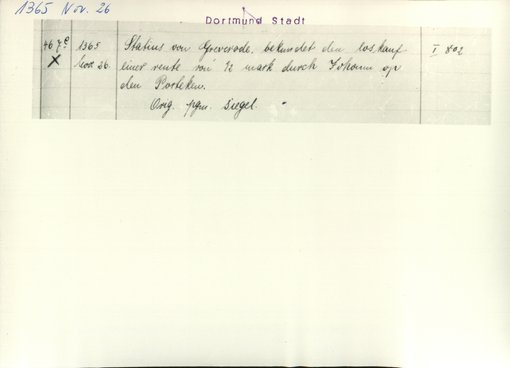 1365 Nov. 26
Dortmund Stadt
467e 1365 Statius von Greverode, bekundet den loskauf I 802
X Nov. 26. einer rente von 12 mark durch Johann op
den Porteken.
Orig. pgm. Siegel.